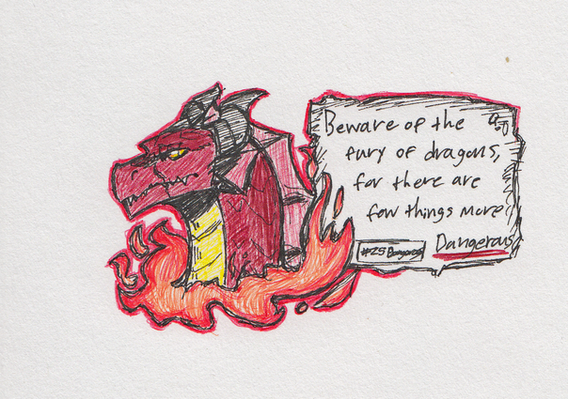 Beware of the
fury of dragons,
for there are
few things more
Dangerous
#25 Dangerous